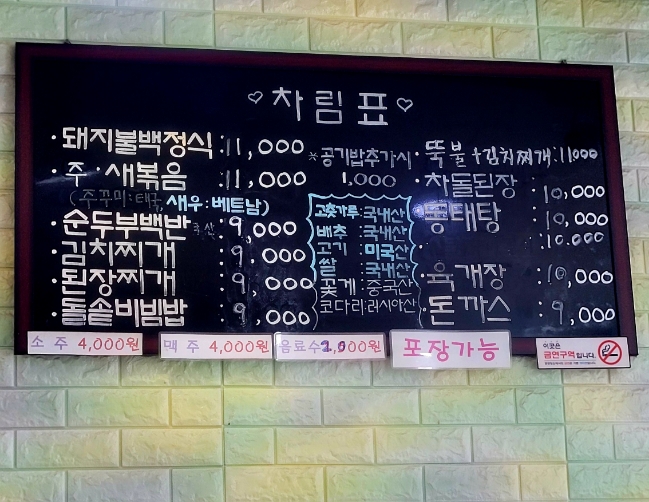 ♡차림표♡
·돼지불백정식:11,000
·주·새볶음:11,000
(주꾸미:태국,새우:베트남)
·순두부백반 9,000
·김치찌개:9,000
·된장찌개:9,000
·돌솥비빔밥:9,000
*공기밥추가시
1,000
고춧가루:국내산
배추:국내산
고기:미국산
쌀:국내산
꽃게:중국산
코다리:러시아산
·뚝불+김치찌개:11000
·차돌된장:10,000
·동태탕
:10.000
·육개장:10,000
·돈까스:9,000
소주 4,000원
맥주 4,000원
음료수 2,000원
포장가능
이곳은
금연구역입니다.